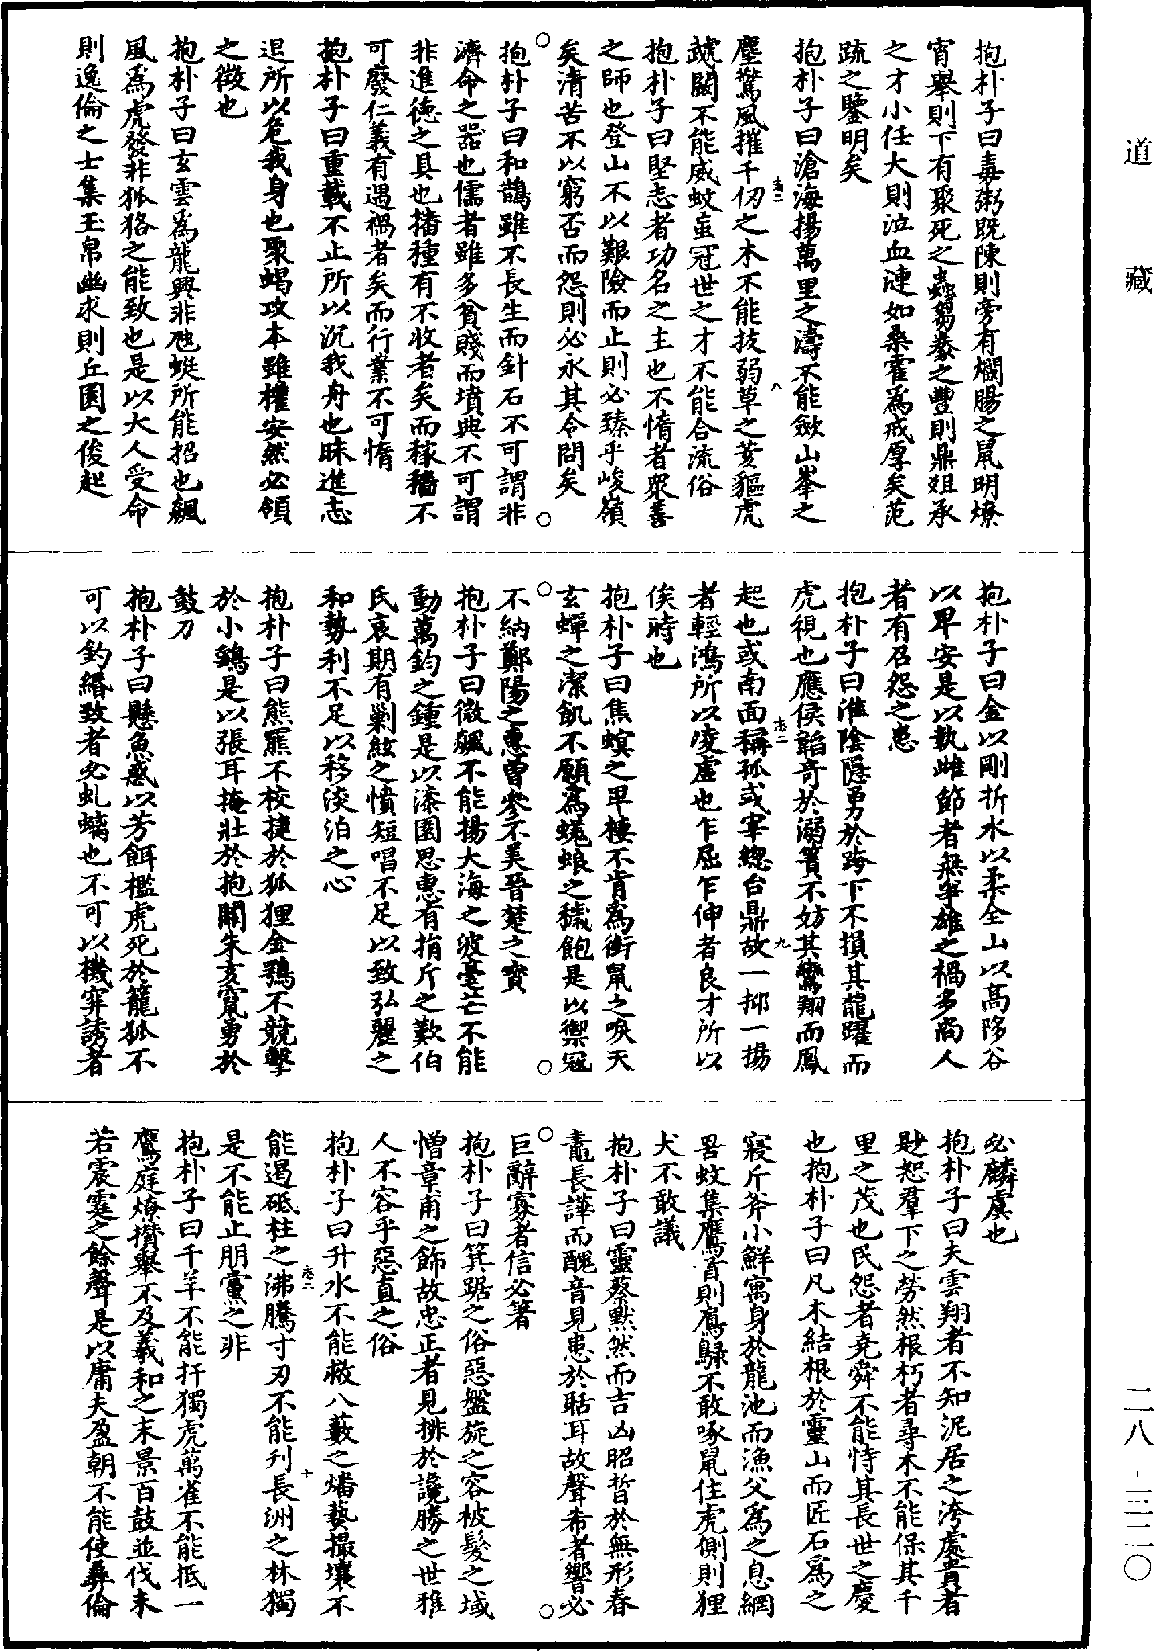 道藏
抱朴子曰毒粥旣陳則旁有爛腸之鼠明燎
宵舉則下有聚死之蟲芻豢之豐則鼎俎承
之才小任大則泣血漣如桑霍爲戒厚矣范
疏之鑒明矣
抱朴子曰滄海揚萬里之濤不能斂山峯之
塵驚風摧千仞之木不能拔弱草之荄貙虎
虓闞不能威蚊䖟冠世之才不能合流俗
抱朴子曰堅志者功名之主也不惰者衆善
之師也登山不以艱險而止則必臻乎峻嶺
矣清苦不以窮否而怨則必永其令問矣
抱朴子曰和鵲雖不長生而針石不可謂非
濟命之器也儒者雖多貧賤而墳典不可謂
非進德之具也播種有不收者矣而稼穡不
可廢仁義有遇禍者矣而行業不可惰
抱朴子曰重載不止所以沉我舟也昧進志
退所以危我身也聚蝎攻本雖權安然必傾
之徵也
抱朴子曰玄雲爲龍興非虺蜓所能招也飆
風爲虎發非狐狢之能致也是以大人受命
則逸倫之士集玉帛幽求則丘園之俊起
抱朴子曰金以剛折水以柔全山以高陊谷
以卑安是以執雌節者無爭雄之禍多尚人
者有召怨之患
抱朴子曰淮陰隱勇於跨下不損其龍躍而
虎視也應侯韜奇於溺簀不妨其鸞翔而鳳
起也或南面稱孤或宰總台鼎故一抑一揚
者輕鴻所以凌虛也乍屈乍伸者良才所以
俟時也
抱朴子曰焦螟之卑棲不肯爲銜鼠之唳天
玄蟬之潔飢不願爲蜣蜋之穢飽是以禦寇
不納鄭陽之惠曾參不美晉楚之寶
抱朴子曰微飆不能揚大海之波毫芒不能
動萬鈞之鍾是以漆園思惠有捐斤之歎伯
氏哀期有剿絃之憤短唱不足以致弘麗之
和勢利不足以移淡泊之心
抱朴子曰熊羆不校捷於狐狸金鶚不競擊
於小鷂是以張耳掩壯於抱關朱亥竄勇於
鼓刀
抱朴子曰懸魚惑以芳餌檻虎死於籠狐不
可以釣緡致者必虬螭也不可以機穽誘者
必麟虞也
抱朴子曰夫雲翔者不知泥居之洿處貴者
尟恕羣下之勞然根朽者尋木不能保其千
里之茂也民怨者堯舜不能恃其長世之慶
也抱朴子曰凡木結根於靈山而匠石爲之
寢斤斧小鮮寓身於龍池而漁父爲之息網
罟蚊集鷹首則鳸鵦不敢啄鼠住虎側則狸
犬不敢議
抱朴子曰靈蔡默然而吉凶昭晳於無形春
鼃長譁而醜音見患於聒耳故聲希者響必
巨辭寡者信必著
抱朴子曰箕踞之俗惡盤旋之容被髮之域
憎章甫之飾故忠正者見排於讒勝之世雅
人不容乎惡直之俗
抱朴子曰升水不能救八藪之燔爇撮壤不
能遏砥柱之沸騰寸刃不能刋長洲之林獨
是不能止朋黨之非
抱朴子曰千羊不能扞獨虎萬雀不能抵一
鷹庭燎攢舉不及羲和之末景百鼓並伐未
若震霆之餘聲是以庸夫盈朝不能使彝倫
二八-三二〇